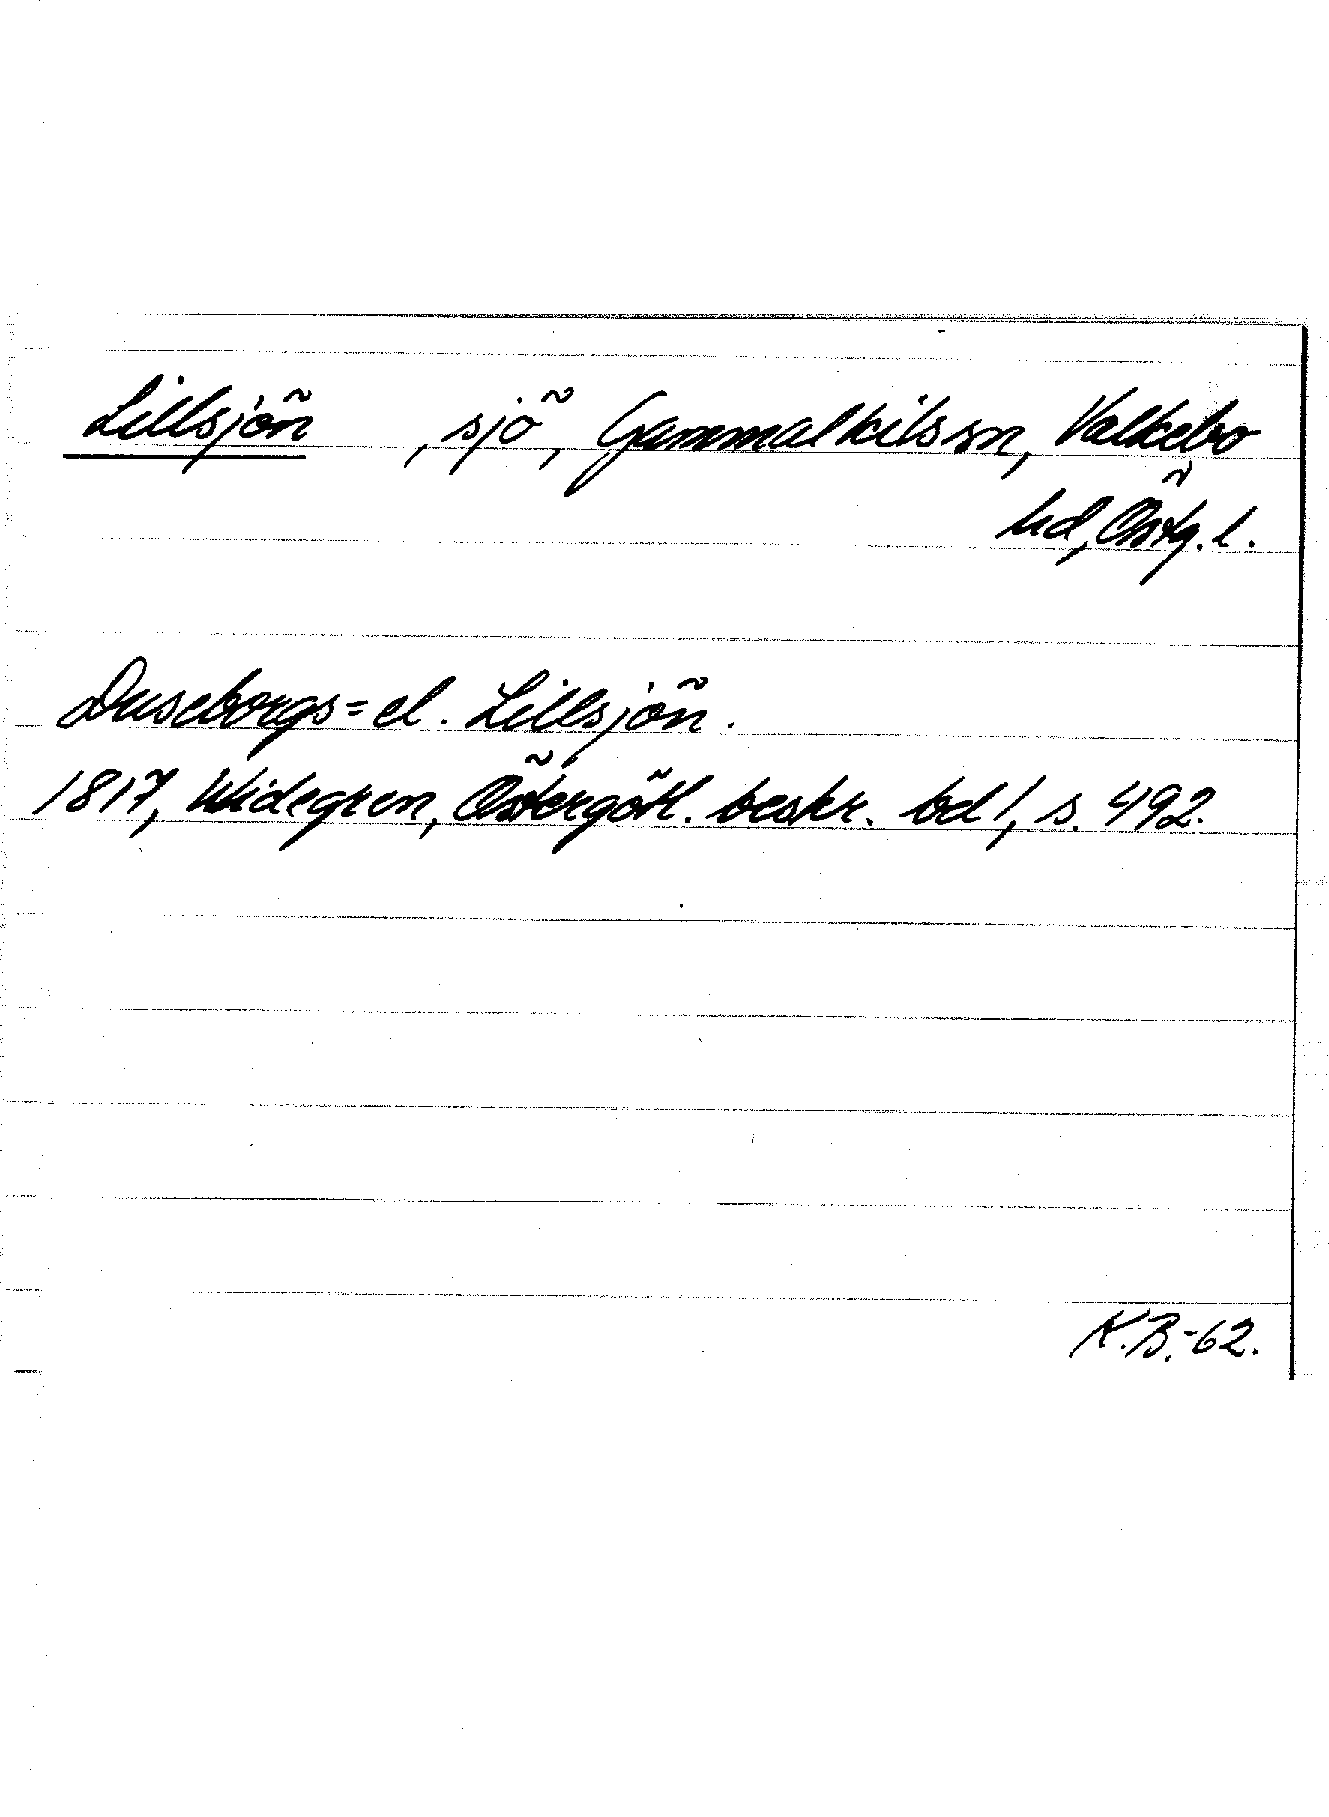 Lillsjön, sjö, Gammalkils sn, Valkebo
hd, Östg. l.
Duseborgs= el. Lillsjön.
1817, Widegren, Östergötl. beskr. bd 1, s. 492.
K.B.-62.